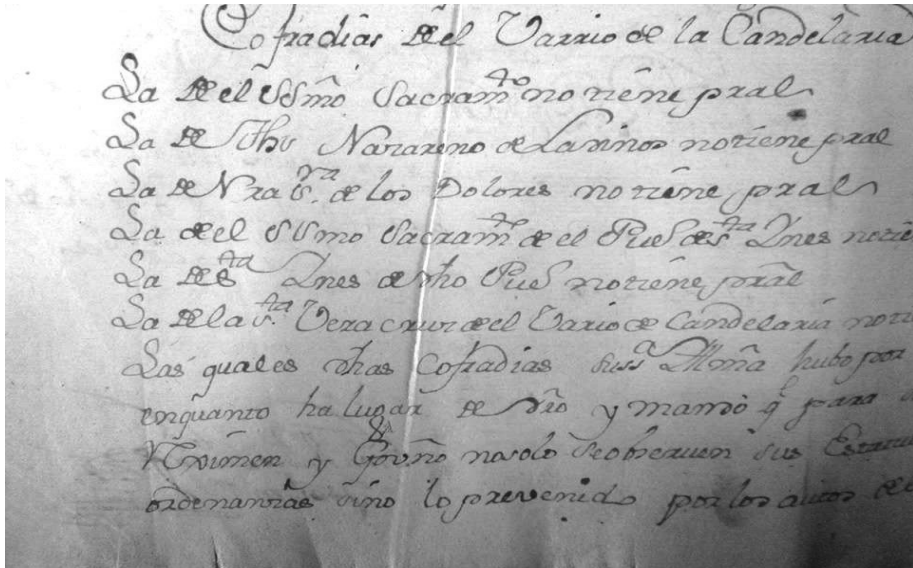 Cofradias del Varrio de la Candelaria
La del SSmõ Sacram̃to no tiene pral
La de Jhs Nazareno de Latinos no tiene pral
La de Nra Sra. de los Dolores no tiene pral
La del SSmo Sacram̃to de el Pueo de Sta Ynes notie
La de Sta Ynes de dho Pueo no tiene prãl
La de la Sta Vera cruz del Vario de Candelaria noti
Las quales dhas Cofradias Sussa Yllmã hubo por
enquanto ha lugar de dr̃o y mandó q̃ para
Rexímen y Govño no solo se obseruen sus Estatu
ordenanzas sino lo prevenido por los autos de